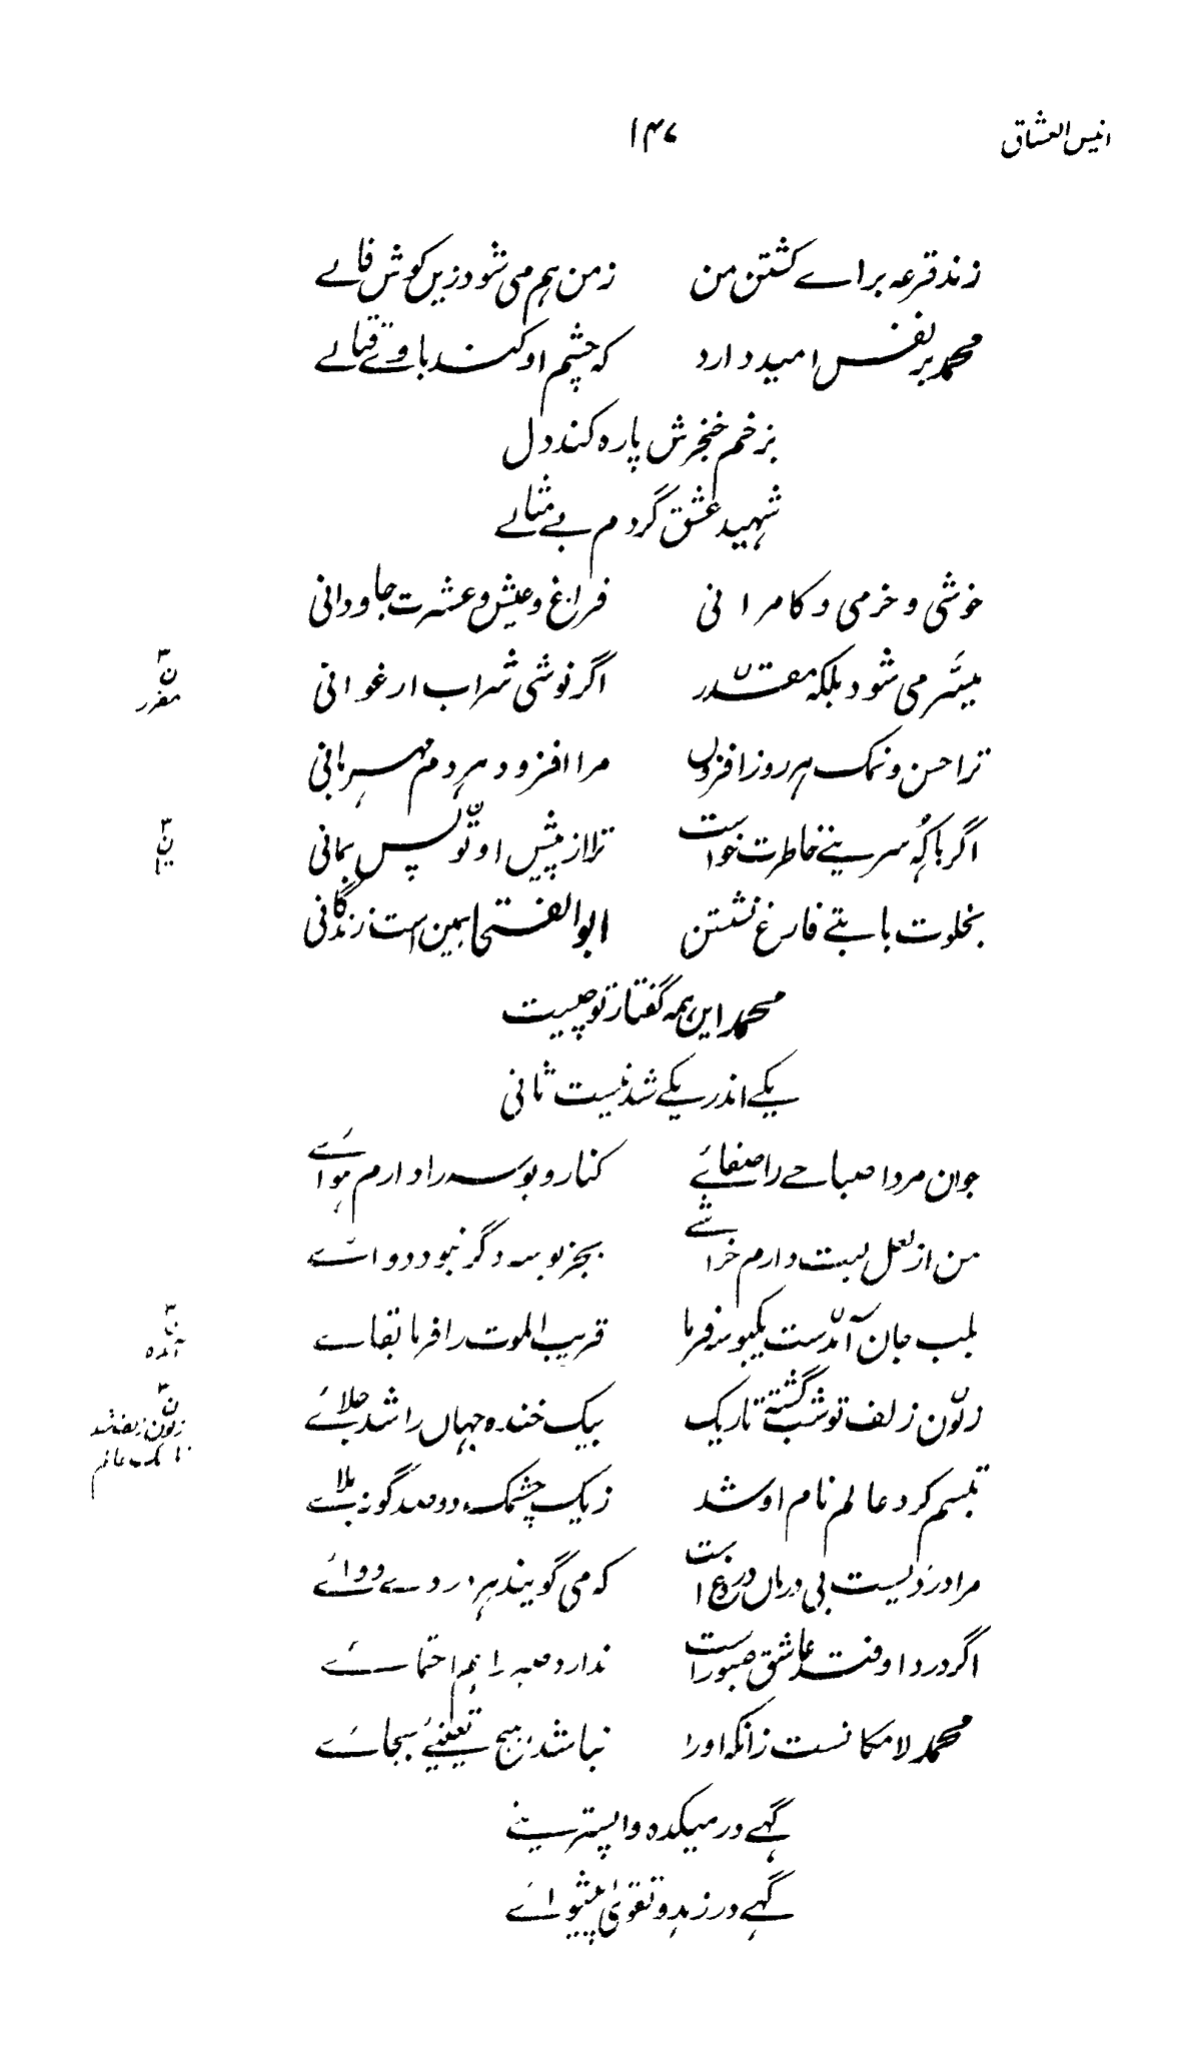 انیس العشاق ۱۴۷
زند قرعہ براے کشتن من زمن ہم می شود زیں کوش فالے
محمد ہر نفس امید دارد کہ چشم او کند با وے قتالے
بزخم خنجرش پارہ کند دل
شہید عشق گردم بے مثالے
خوشی و خرمی و کامرانی فراغ و عیش و عشرت جاودانی
میسّر می شود بلکہ مقدر اگر نوشی شراب ارغوانی
ترا حسن و نمک ہر روز افزوں مرا افزود ہر دم مہربانی
اگر باکہ سرینے خاطرت خواست ترا از پیش او تو پس بمانی
بخلوت با بتے فارغ نشستن ابوالفتحا ہمین است زندگانی
محمد این ہمہ گفتار تو چیست
یکے اندر یکے شد نیست ثانی
جوان مردا صباحے را صفائے کنار و بوسہ را دارم ہوائے
من از لعل لبت دارم خراشے بجز بوسہ دگر نبود دوائے
بلب جان آمدست یکبوسہ فرما قریب الموت را فرما بقاے
زلون زلف تو شب گشتہ تاریک بیک خندہ جہاں را شد جلائے
تبسم کرد عالم نام او شد زیک چشمک دو صد گونہ بلائے
مرا دردیست بی درماں است کہ می گویند ہر دردے دوائے
اگر درد اوفتد عاشق صبور است ندارد صبر را ہم احتمائے
محمد لامکانست زانکہ اورا نباشد ہیچ تعیینے بجائے
گہے در میکدہ
گہے در زہد و تقویٰ پیشوائے
۳
ن
مقرر
۳
ن
۳
ن
آمدہ
۳
ن